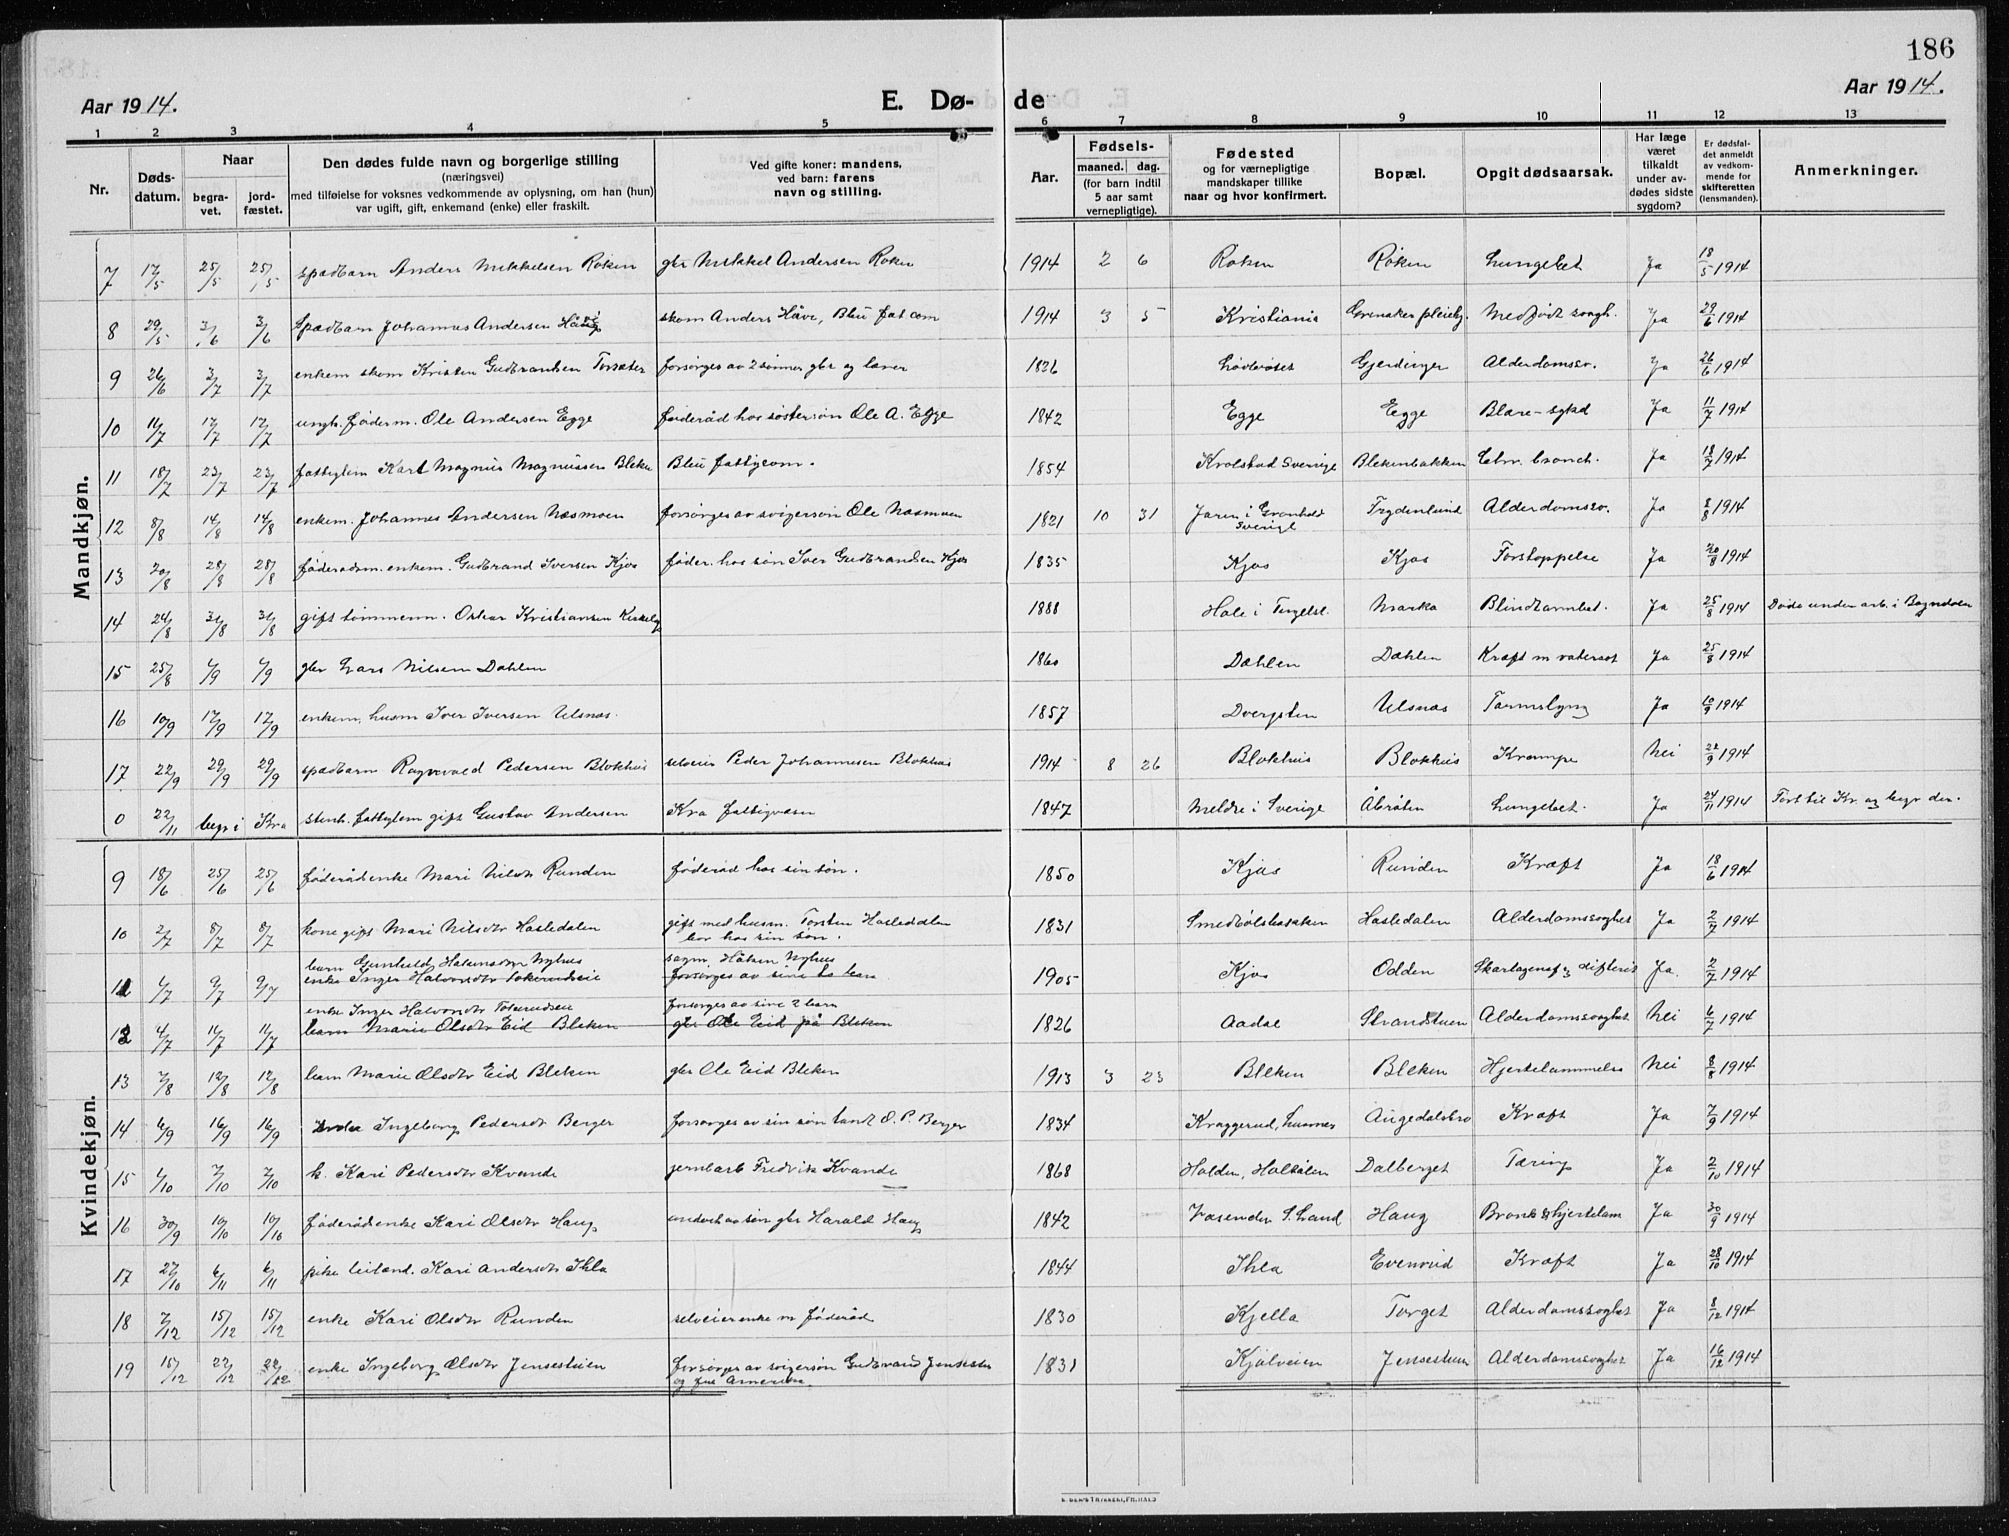 186
Aar 1914.
E. Dø-
de
Aar 1914.
1 2 3 4 5 6 7 8 9 10 11 12 13
Nr.
Døds-
datum.
Naar
begra-
vet.
jord-
fæstet.
Den dødes fulde navn og borgerlige stilling
(næringsvei)
med tilføielse for voksnes vedkommende av oplysning, om han (hun)
var ugift, gift, enkemand (enke) eller fraskilt.
Ved gifte koner: mandens,
ved barn: farens
navn og stilling.
Aar.
Fødsels-
maaned. dag.
(for barn indtil
5 aar samt
vernepligtige).
Fødested
og for værnepligtige
mandskaper tillike
naar og hvor konfirmert.
Bopæl.
Opgit dødsaarsak.
Har læge
været
tilkaldt
under av-
dødes sidste
sygdom?
Er dødsfal-
det anmeldt
av vedkom-
mende for
skifteretten
(lensmanden).
Anmerkninger.
Mandkjøn.
7 17/5 25/5 25/5 spædbarn Anders Mikkelsen Røken gbr Mikkel Andersen Røken 1914 2 6 Røken Røken Lungebet Ja 18/5 1914
8 29/5 3/6 3/6 Spædbarn Johannes Andersen skom Anders Håve, Bleu fat com 1914 3 5 Kristiania Grinaker pleiehj. Medfødt svagh. Ja 29/6 1914
9 26/6 3/7 3/7 enkem skom Kristen Gudbrandsen Torsæter forsørges av 2 sønner gbr og lærer 1826 Gjerdinger Alderdomssv. Ja 26/6 1914
10 11/7 17/7 17/7 ungk. føderm. Ole Andersen Egge føderåd hos søstersøn Ole A. Egge 1842 Egge Egge Blære-sykd Ja 11/7 1914
11 18/7 23/7 23/7 fattiglem Karl Magnus Magnussen Bleken Bleu fattigcom. 1854 Krolstad Sverige Blekenbakken Chr. bronch. Ja 18/7 1914
12 8/8 14/8 14/8 enkem. Johannes Andersen Næsmoen forsørges av svigersøn Ole Næsmoen 1821 10 31 Jaren i
Sverige Trydenlund Alderdomssv. Ja 8/8 1914
13 20/8 28/8 28/8 føderadsm. enkem. Gudbrand Iversen Kjos føder. hos søn Iver Gudbrandsen Kjos 1835 Kjos Kjos Forstoppelse Ja 20/8 1914
14 24/8 31/8 31/8 gift tømmerm. Oskar Kristiansen 1888 Hole i Tingelst. Marka Blindtarmbet. Ja 25/8 1914 Døde under arb. i Bagndalen
15 25/8 1/9 1/9 gbr Lars Nilsen Dæhlen 1860 Dæhlen Dæhlen Kræft m vatersot Ja 25/8 1914
16 10/9 17/9 17/9 enkem. husm Iver Iversen Ulsnæs. 1857 Dvergsten Ulsnæs Tarmslyng Ja 10/9 1914
17 22/9 29/9 29/9 spædbarn Ragnvald Pedersen Blokhus selveier Peder Johannesen Blokhus 1914 8 26 Blokhus Blokhus Krampe Nei 22/9 1914
0 22/11 begr i Kra stenh. fattiglem gift Gustav Andersen Kra fattigvæsen 1847 Meldre i Sverige Åbråten Lungebet. Ja 24/11 1914 Ført til Kr. og begr der.
Kvindekjøn.
9 18/6 25/6 25/6 føderådenke Mari Nilsdr Runden føderåd hos sin søn. 1850 Kjos Runden Kræft Ja 18/6 1914
10 2/7 8/7 8/7 kone gift Mari Nilsdr Hasledalen gift med husm. Torsten Hasledalen
bor hos sin søn. 1831 Smedbølsbakken Hasledalen Alderdomssvaghet Ja 2/7 1914
barn Gunhild Hakensdr Nyhus sagm. Håken Nyhus
11 1/7 9/7 9/7 enke Inger Halvorsdr Tokerudseie forsørges av sine to barn 1905 Kjos Odden Skarlagensf og difterit Ja. 2/7 1914
enke Inger Halvorsdr Tokerudseie forsørges av sine 2 barn
12 4/7 11/7 11/7 barn Marie Olsdtr Eid Bleken gbr Ole Eid på Bleken 1826 Aadal Strandstuen Alderdomssvaghet Nei 6/7 1914
13 7/8 12/8 12/8 barn Marie Olsdtr Eid Bleken gbr Ole Eid Bleken 1913 3 23 Bleken Bleken Hjertelammelse Nei 8/8 1914
14 6/9 16/9 16/9 Ingeborg Pedersdr Berger forsørges av sin søn landh O. P. Berger 1834 Kraggerud, Lunner Augedalsbro Kræft Ja 7/9 1914
15 1/10 7/10 7/10 k. Kari Pedersdr Kvande jernbarb Fredrik Kvande 1868 Holden, Holtålen Dalberget Tæring Ja 2/10 1914
16 30/9 10/10 10/10 føderådenke Kari Olsdr Haug underh av søn gbr Harald Haug 1842 Vasenden S. Land Haug Bronk & hjertelam Ja 30/9 1914
17 27/10 6/11 6/11 pike leiland. Kari Andersdr Ihla 1844 Ihla Evenrud Kræft Ja 28/10 1914
18 7/12 15/12 15/12 enke Kari Olsdr Runden selveierenke m føderåd 1830 Kjella Torget Alderdomssvaghet Ja 8/12 1914
19 15/12 22/12 22/12 enke Ingeborg Olsdtr Jensestuen forsørges av svigersøn Gudbrand Jensestuen
og fra Amerika. 1831 Kjølveien Jensestuen Alderdomssvaghet Ja 16/12 1914